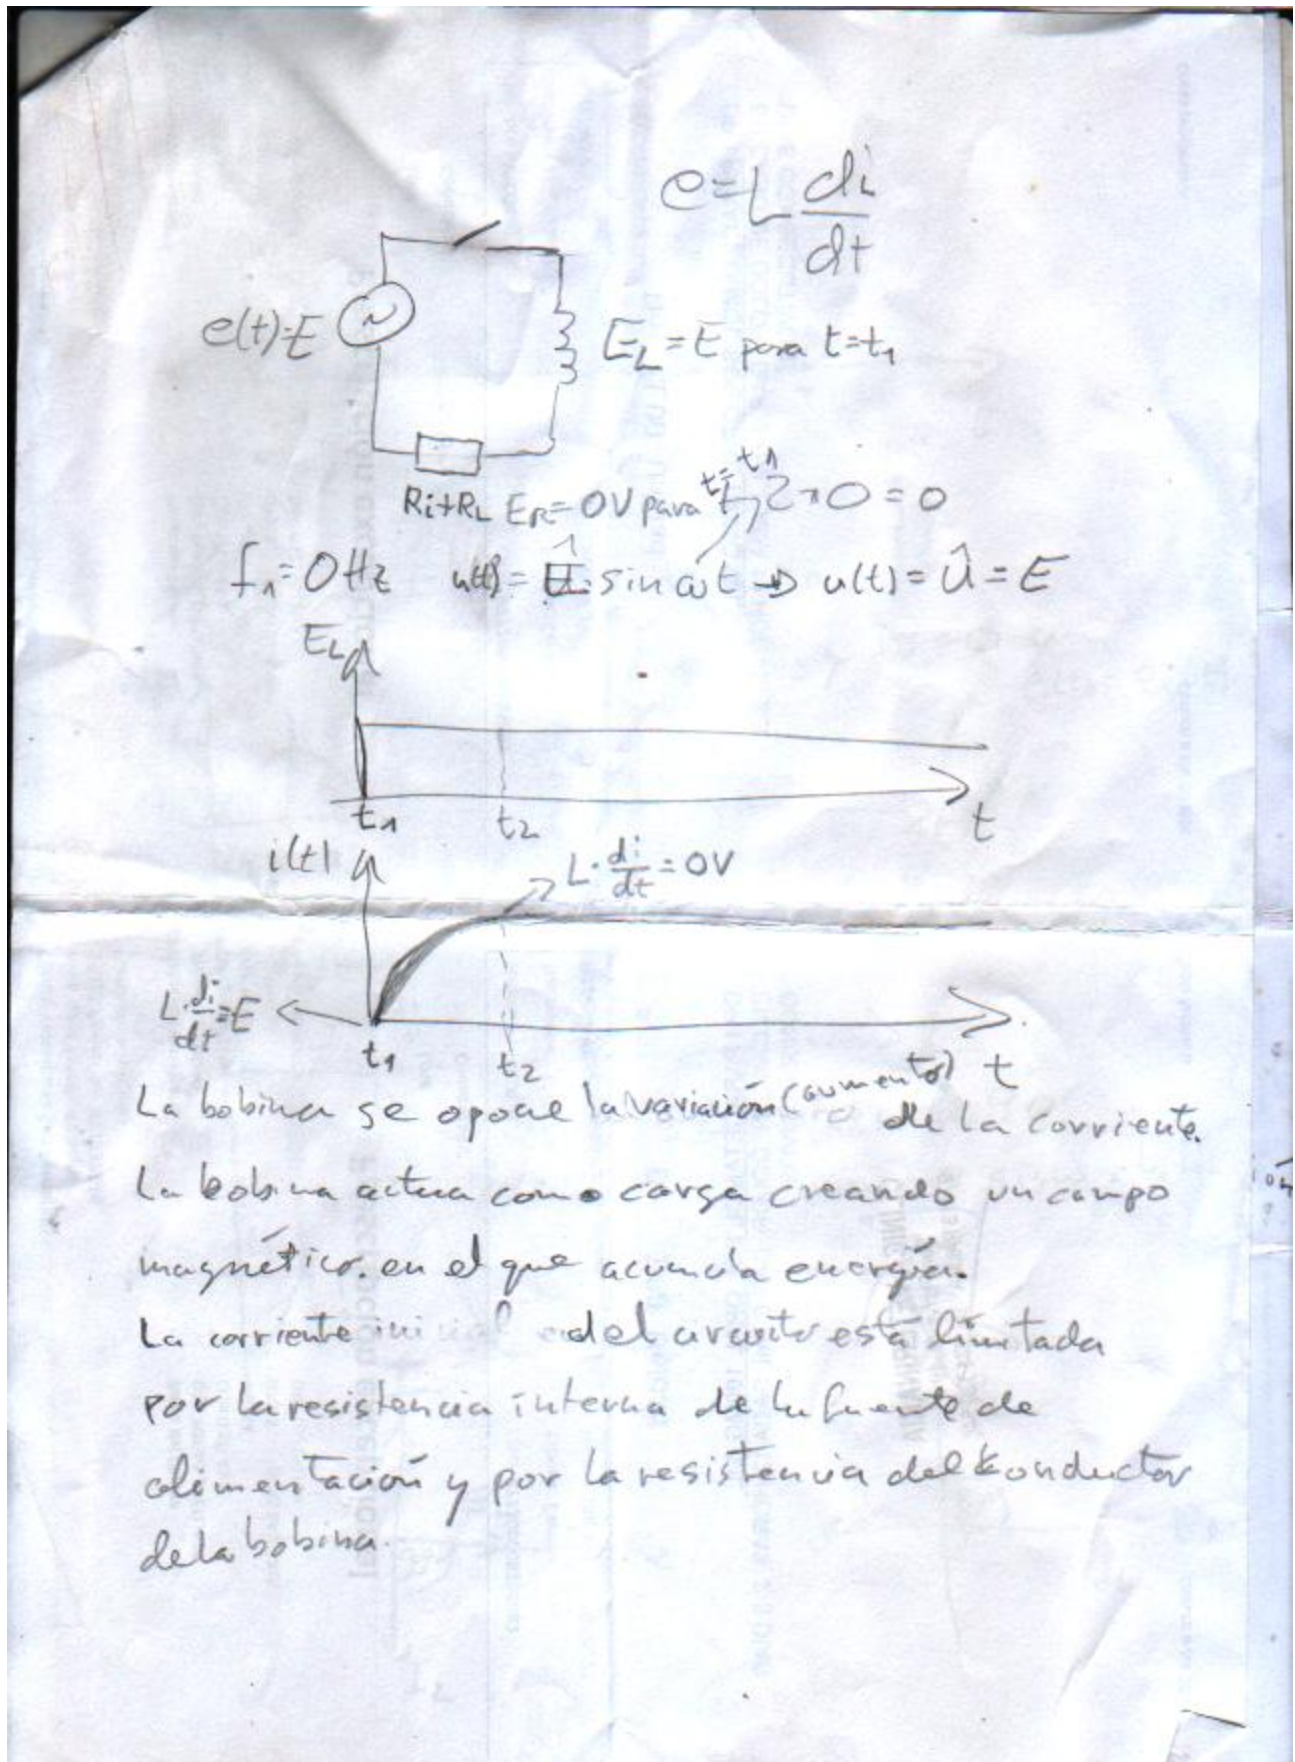 e=L di/dt
e(t)=E
E_L = E para t=t₁
Ri+RL E_R=0V para t=t₁ 2π0=0
f₁=0Hz u(t)=Û·sin ωt ⇒ u(t)=Û=E
E_L
t₁ t₂ t
i(t)
L·di/dt=0V
L·di/dt=E
t₁ t₂ t
La bobina se opone la variación (aumento) de la corriente.
La bobina actua como carga creando un campo
magnético. en el que acumula energía.
La corriente inicial del circuito está limitada
por la resistencia interna de la fuente de
alimentación y por la resistencia del konductor
de la bobina.